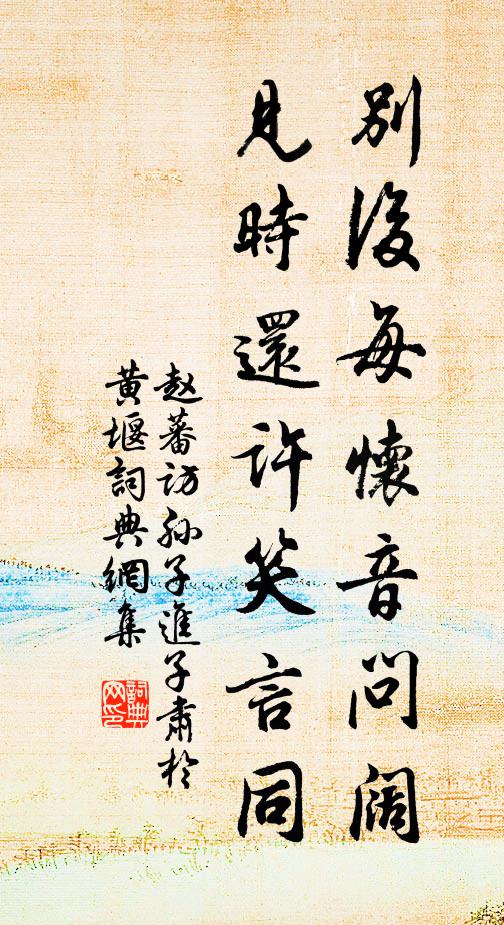 別後每懷音問闊
見時還許笑言同
赵蕃访孙子進子肅於
黄堰詞典網集
詞典网印